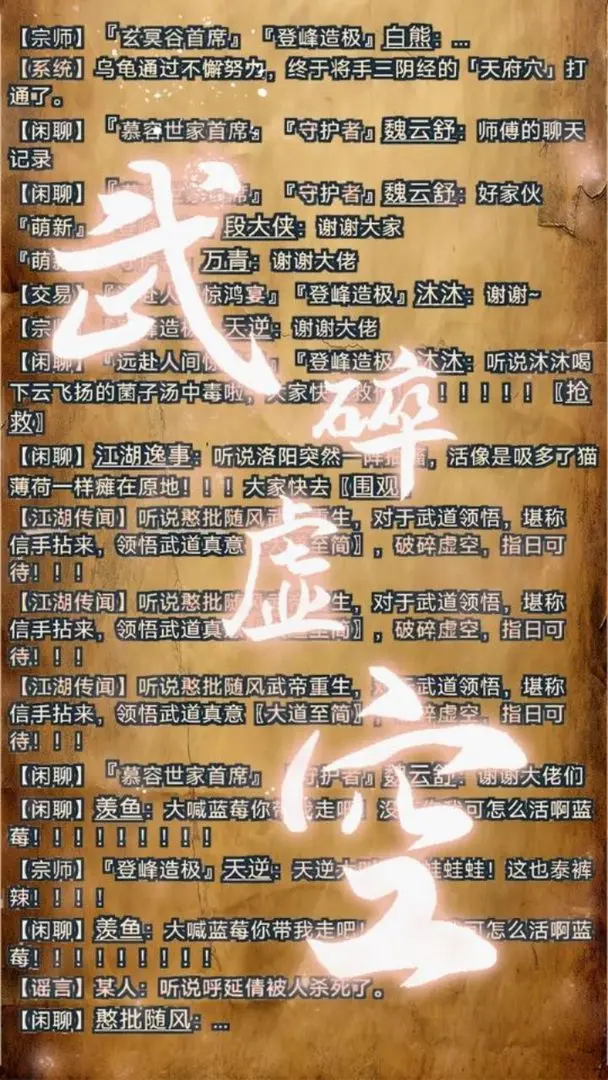 【宗师】『玄冥谷首席』『登峰造极』白熊：...
【系统】乌龟通过不懈努力，终于将手三阴经的「天府穴」打
通了。
【闲聊】『慕容世家首席』『守护者』魏云舒：师傅的聊天
记录
【闲聊】『首席』『守护者』魏云舒：好家伙
『萌新』段大侠：谢谢大家
『萌 万青：谢谢大佬
【交易】赴人 惊鸿宴』『登峰造极』沐沐：谢谢~
【宗 峰造极』天逆：谢谢大佬
【闲聊】『远赴人间惊 』『登峰造极』沐沐：听说沐沐喝
下云飞扬的菌子汤中毒啦，大家快 救 ！！！！！！〖抢
救〗
【闲聊】江湖逸事：听说洛阳突然一阵 ，活像是吸多了猫
薄荷一样瘫在原地！！！大家快去〖围观〗
【江湖传闻】听说憨批随风武帝重生，对于武道领悟，堪称
信手拈来，领悟武道真意〖大道至简〗，破碎虚空，指日可
待！！！
【江湖传闻】听说憨批随风武帝重生，对于武道领悟，堪称
信手拈来，领悟武道真意〖大道至简〗，破碎虚空，指日可
待！！！
【江湖传闻】听说憨批随风武帝重生，对于武道领悟，堪称
信手拈来，领悟武道真意〖大道至简〗，破碎虚空，指日可
待！！！
【闲聊】『慕容世家首席』『守护者』魏云舒：谢谢大佬们
【闲聊】羡鱼：大喊蓝莓你带我走吧！没 你我可怎么活啊蓝
莓！！！！！！！！！
【宗师】『登峰造极』天逆：天逆大 蛙蛙蛙！这也泰裤
辣！！！！
【闲聊】羡鱼：大喊蓝莓你带我走吧！ 可怎么活啊蓝
莓！！！！！！！！！
【谣言】某人：听说呼延倩被人杀死了。
【闲聊】憨批随风：...
武
碎
虚
空